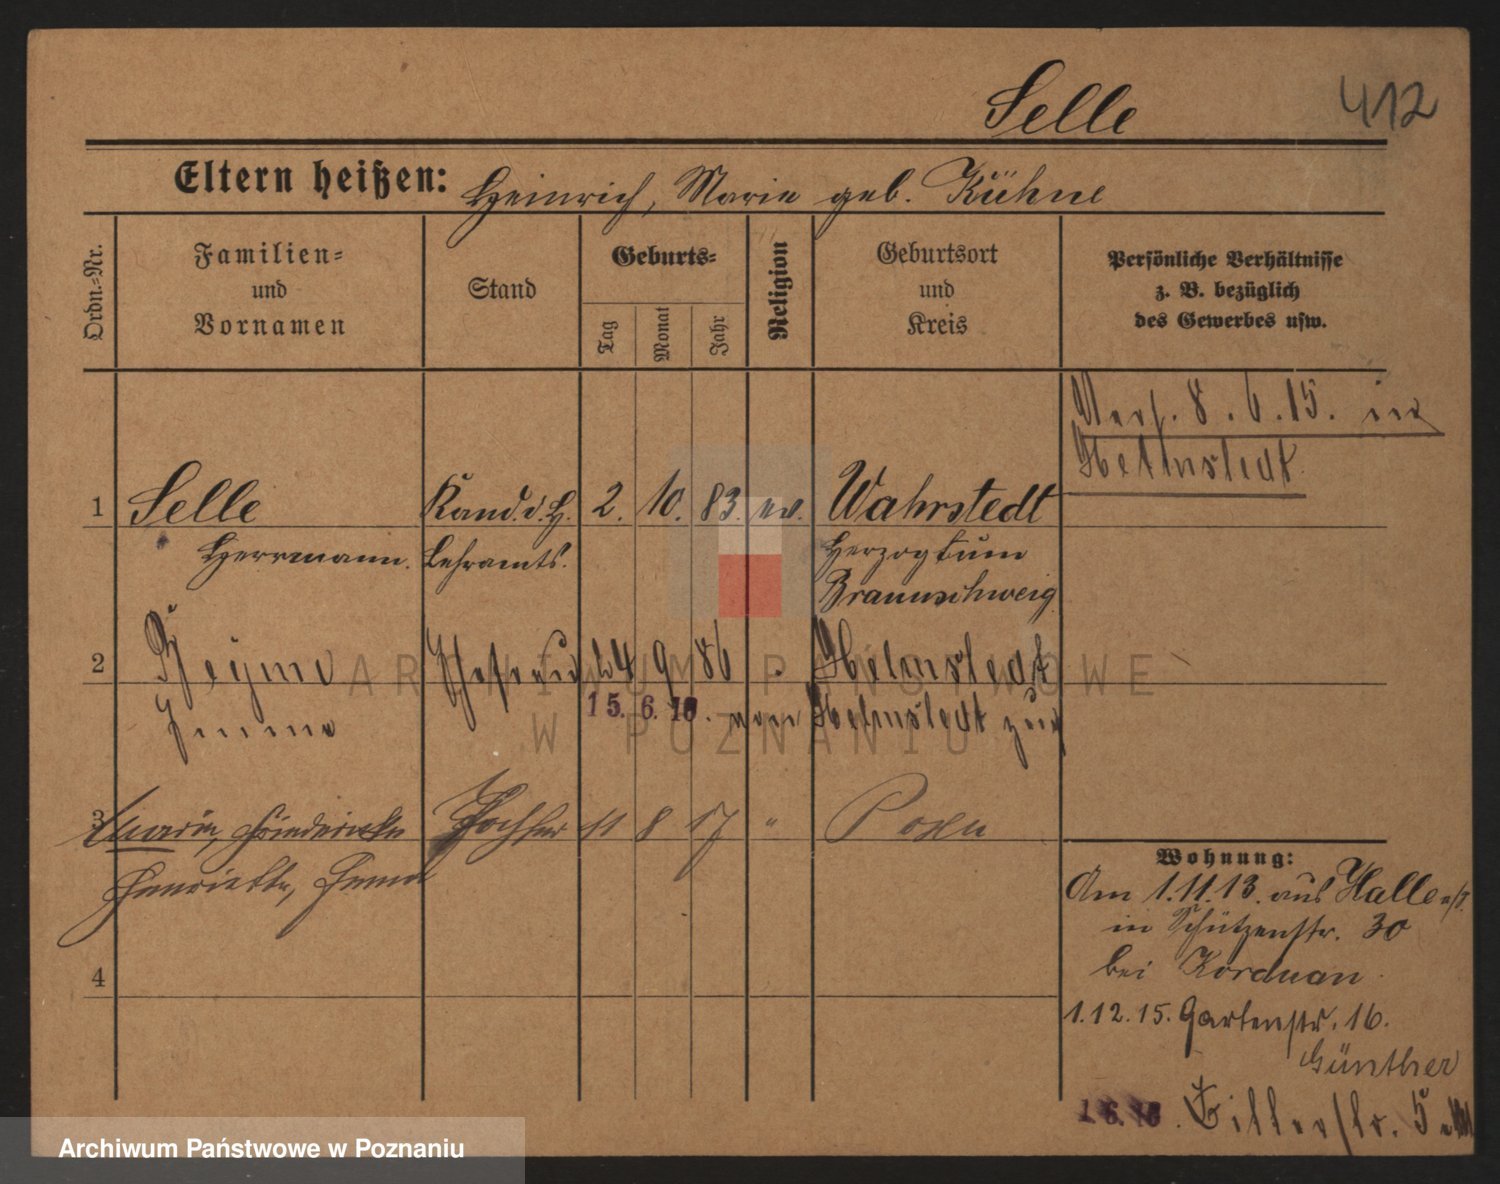 Selle
412
Eltern heißen: Heinrich, Marie geb. Kühne
Ordn.-Nr.
Familien-
und
Vornamen
Stand
Geburts-
Tag
Monat
Jahr
Religion
Geburtsort
und
Kreis
Persönliche Verhältnisse
z. B. bezüglich
des Gewerbes usw.
8.6.15. in
Helmstedt.
1 Selle Kand. d. H. 2. 10. 83. ev. Wahrstedt
Herrmann. Lehramts. Herzogtum
Braunschweig
2 Ehefrau 24 9 86 Helmstedt
15. 6. 16. von Helmstedt zur
Imma
3 Marie, Friederike Tochter 11 8 17 " Posen
Henriette, Emma
4
Wohnung:
Am 1.11.13. aus Halle a/S.
in Schützenstr. 30
bei Korduan.
1.12.15. Gartenstr. 16.
Günther
1.6.16. 5
ARCHIWUM PAŃSTWOWE
W POZNANIU
Archiwum Państwowe w Poznaniu